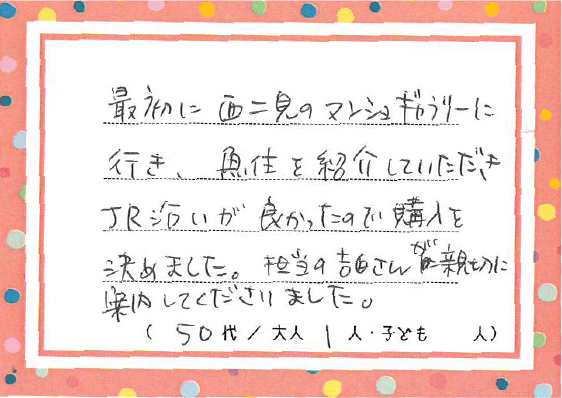 最初に西二見のマンションギャラリーに
行き、魚住を紹介していただき
JR沿いが良かったので購入を
決めました。担当の吉田さんが親切に
案内してくださいました。
（50代／大人1人・子ども　人）